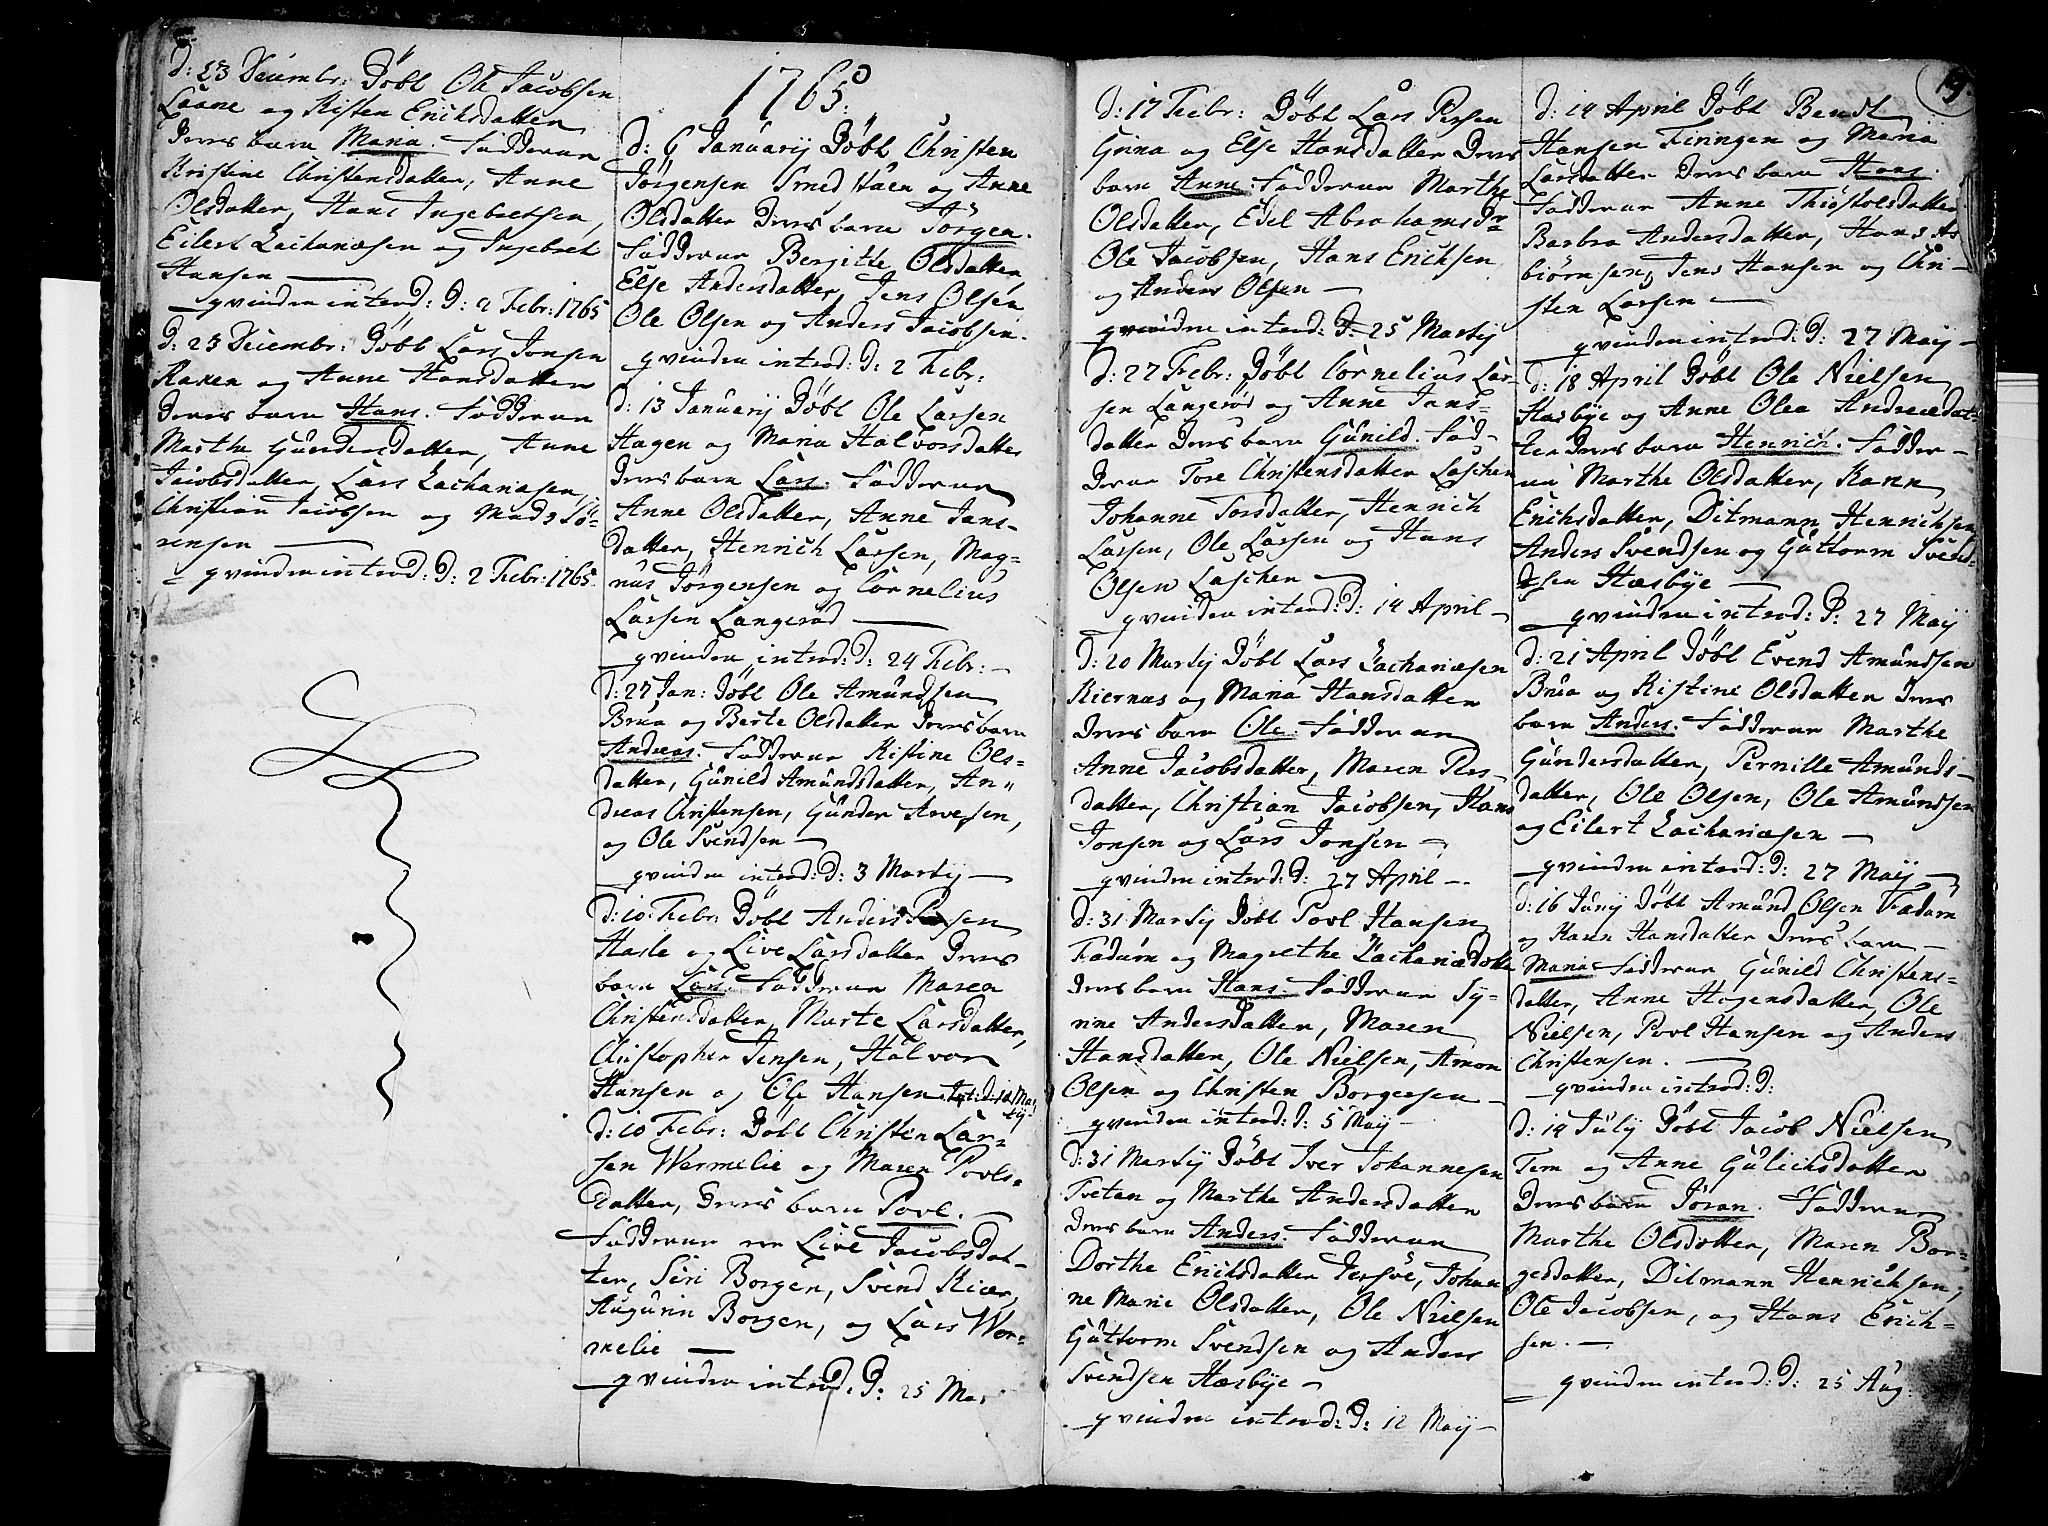 d: 23 Decembr: Döbt Ole Jacobsen
Laane og Kisten Erichsdatter
Deres barn Maria. Fadderne
Kristine Christensdatter, Anne
Olsdatter, Hans Ingebretsen,
Eilert Zachariæsen og Ingebret
Hansen —
— qvinden introd: d: 2 Febr: 1765
d: 23 Decembr: Döbt Lars Jonsen
Ramen og Anne Hansdatter
Deres barn Hans. Fadderne
Marthe Gundersdatter, Anne
Jacobsdatter, Lars Zachariæsen,
Christian Jacobsen og Mads Sö-
rensen —
— qvinden introd: d: 2 Febr: 1765.
1765.
d: 6 Januarij Döbt Christen
Jörgensen Smedstuen og Anne
Olsdatter Deres barn Jörgen.
Fadderne Bergitte Olsdatter
Else Andersdatter, Jens Olsen
Ole Olsen og Anders Jacobsen.
qvinden introd: d: 2 Febr:
d: 13 Januarij Döbt Ole Larsen
Hagen og Maria Halvorsdatter
Deres barn Lars. Fadderne
Anne Olsdatter, Anne Jans-
datter, Henrich Larsen, Mag-
nus Jörgensen og Cornelius
Larsen Langeröd —
— qvinden introd: d: 24 Febr: —
d: 27 Jan: Döbt Ole Amundsen
Brua og Berte Olsdatter Deres barn
Andreas. Fadderne Kistine Ols-
datter, Gunild Amundsdatter, An-
dreas Christensen, Gunder Arvesen,
og Ole Svendsen —
— qvinden introd: d: 3 Martij —
d: 10 Febr: Döbt Anders
Hasle og Live Larsdatter Deres
barn Lars. Fadderne Maren
Christensdatter, Marte Larsdatter,
Christopher Jensen, Halvor
Hansen og Ole Hansen int: d: 12 Mar
tij
d: 10 Febr: Döbt Christen Lar-
sen Wermelie og Maren Povls-
datter, Deres barn Povl. —
Fadderne er Live Jacobsdat-
ter, Siri Borgen, Svend Kiær,
Augurin Borgen, og Lars Wer-
melie —
— qvinden introd: d: 25 Mar
19
d: 17 Febr: Döbt Lars Persen
Grina og Else Hansdatter Deres
barn Anne. Fadderne Marthe
Olsdatter, Edel Abrahamsdr
Ole Jacobsen, Hans Erichsen
og Anders Olsen —
qvinden introd: d: 25 Martij
d: 27 Febr: Döbt Cornelius Lar-
sen Langeröd og Anne Jans-
datter Deres barn Gunild. Fad-
derne Tore Christensdatter Laschen
Johanne Torsdatter, Henrich
Larsen, Ole Larsen og Hans
Olsen Laschen —
qvinden introd: d: 14 April —
d: 20 Martij Döbt Lars Zachariæsen
Kiernaas og Maria Hansdatter
Deres barn Ole. Fadderne
Anne Jacobsdatter, Maren Pers-
datter, Christian Jacobsen, Hans
Jonsen og Lars Jonsen —
— qvinden introd: d: 27 April —
d: 31 Martij Döbt Povl Hansen
Fadum og Magrethe Zachariædotter
Deres barn Hans. Fadderne Sy-
rine Andersdatter, Maren
Hansdatter, Ole Nielsen, Amon
Olsen og Christen Borgersen —
— qvinden introd: d: 5 Maij —
d: 31 Martij Döbt Iver Johannesen
Tveten og Marthe Andersdatter
Deres barn Anders. Fadderne
Dorthe Erichsdatter Jersöe, Johan
ne Marie Olsdatter, Ole Nielsen
Guttorm Svendsen og Anders
Svendsen Hæsbye —
— qvinden introd: d: 12 Maij —
d: 14 April Döbt Bendt
Hansen Feningen og Maria
Larsdatter Deres barn Hans.
Fadderne Anne Thiöstolsdatter
Barbra Andersdatter, Hans As
biörnsen, Jens Hansen og Chri-
sten Larsen —
qvinden introd: d: 27 Maij —
d: 18 April Döbt Ole Nielsen
Hæsbye og Anne Olea Andreædat
ter Deres barn Henrich. Fadder-
ne Marthe Olsdatter, Karen
Erichsdatter, Ditmann Henrichsen
Anders Svendsen og Guttorm Svend-
sen Hæsbye —
— qvinden introd: d: 27 Maij
d: 21 April Döbt Evend Amundsen
Brua og Kistine Olsdatter Deres
barn Anders. Fadderne Marthe
Gundersdatter, Pernille Amunds-
datter, Ole Olsen, Ole Amundsen
og Eilert Zachariæsen —
— qvinden introd: d: 27 Maij —
d: 16 Junij Döbt Amund Olsen Fadum
og Karen Hansdatter Deres barn —
Maria. Fadderne Gunild Christens-
datter, Anne Hagensdatter, Ole
Nielsen, Povl Hansen og Anders
Christensen. —
qvinden introd: d:
d: 14 Julij Döbt Jacob Nielsen
Tem og Anne Gulichsdatter
Deres barn Joran. Fadderne
Marthe Olsdatter, Maren Bor-
gesdatter, Ditmann Henrichsen,
Ole Jacobsen, og Hans Erich-
sen. —
qvinden introd: d: 25 Aug: